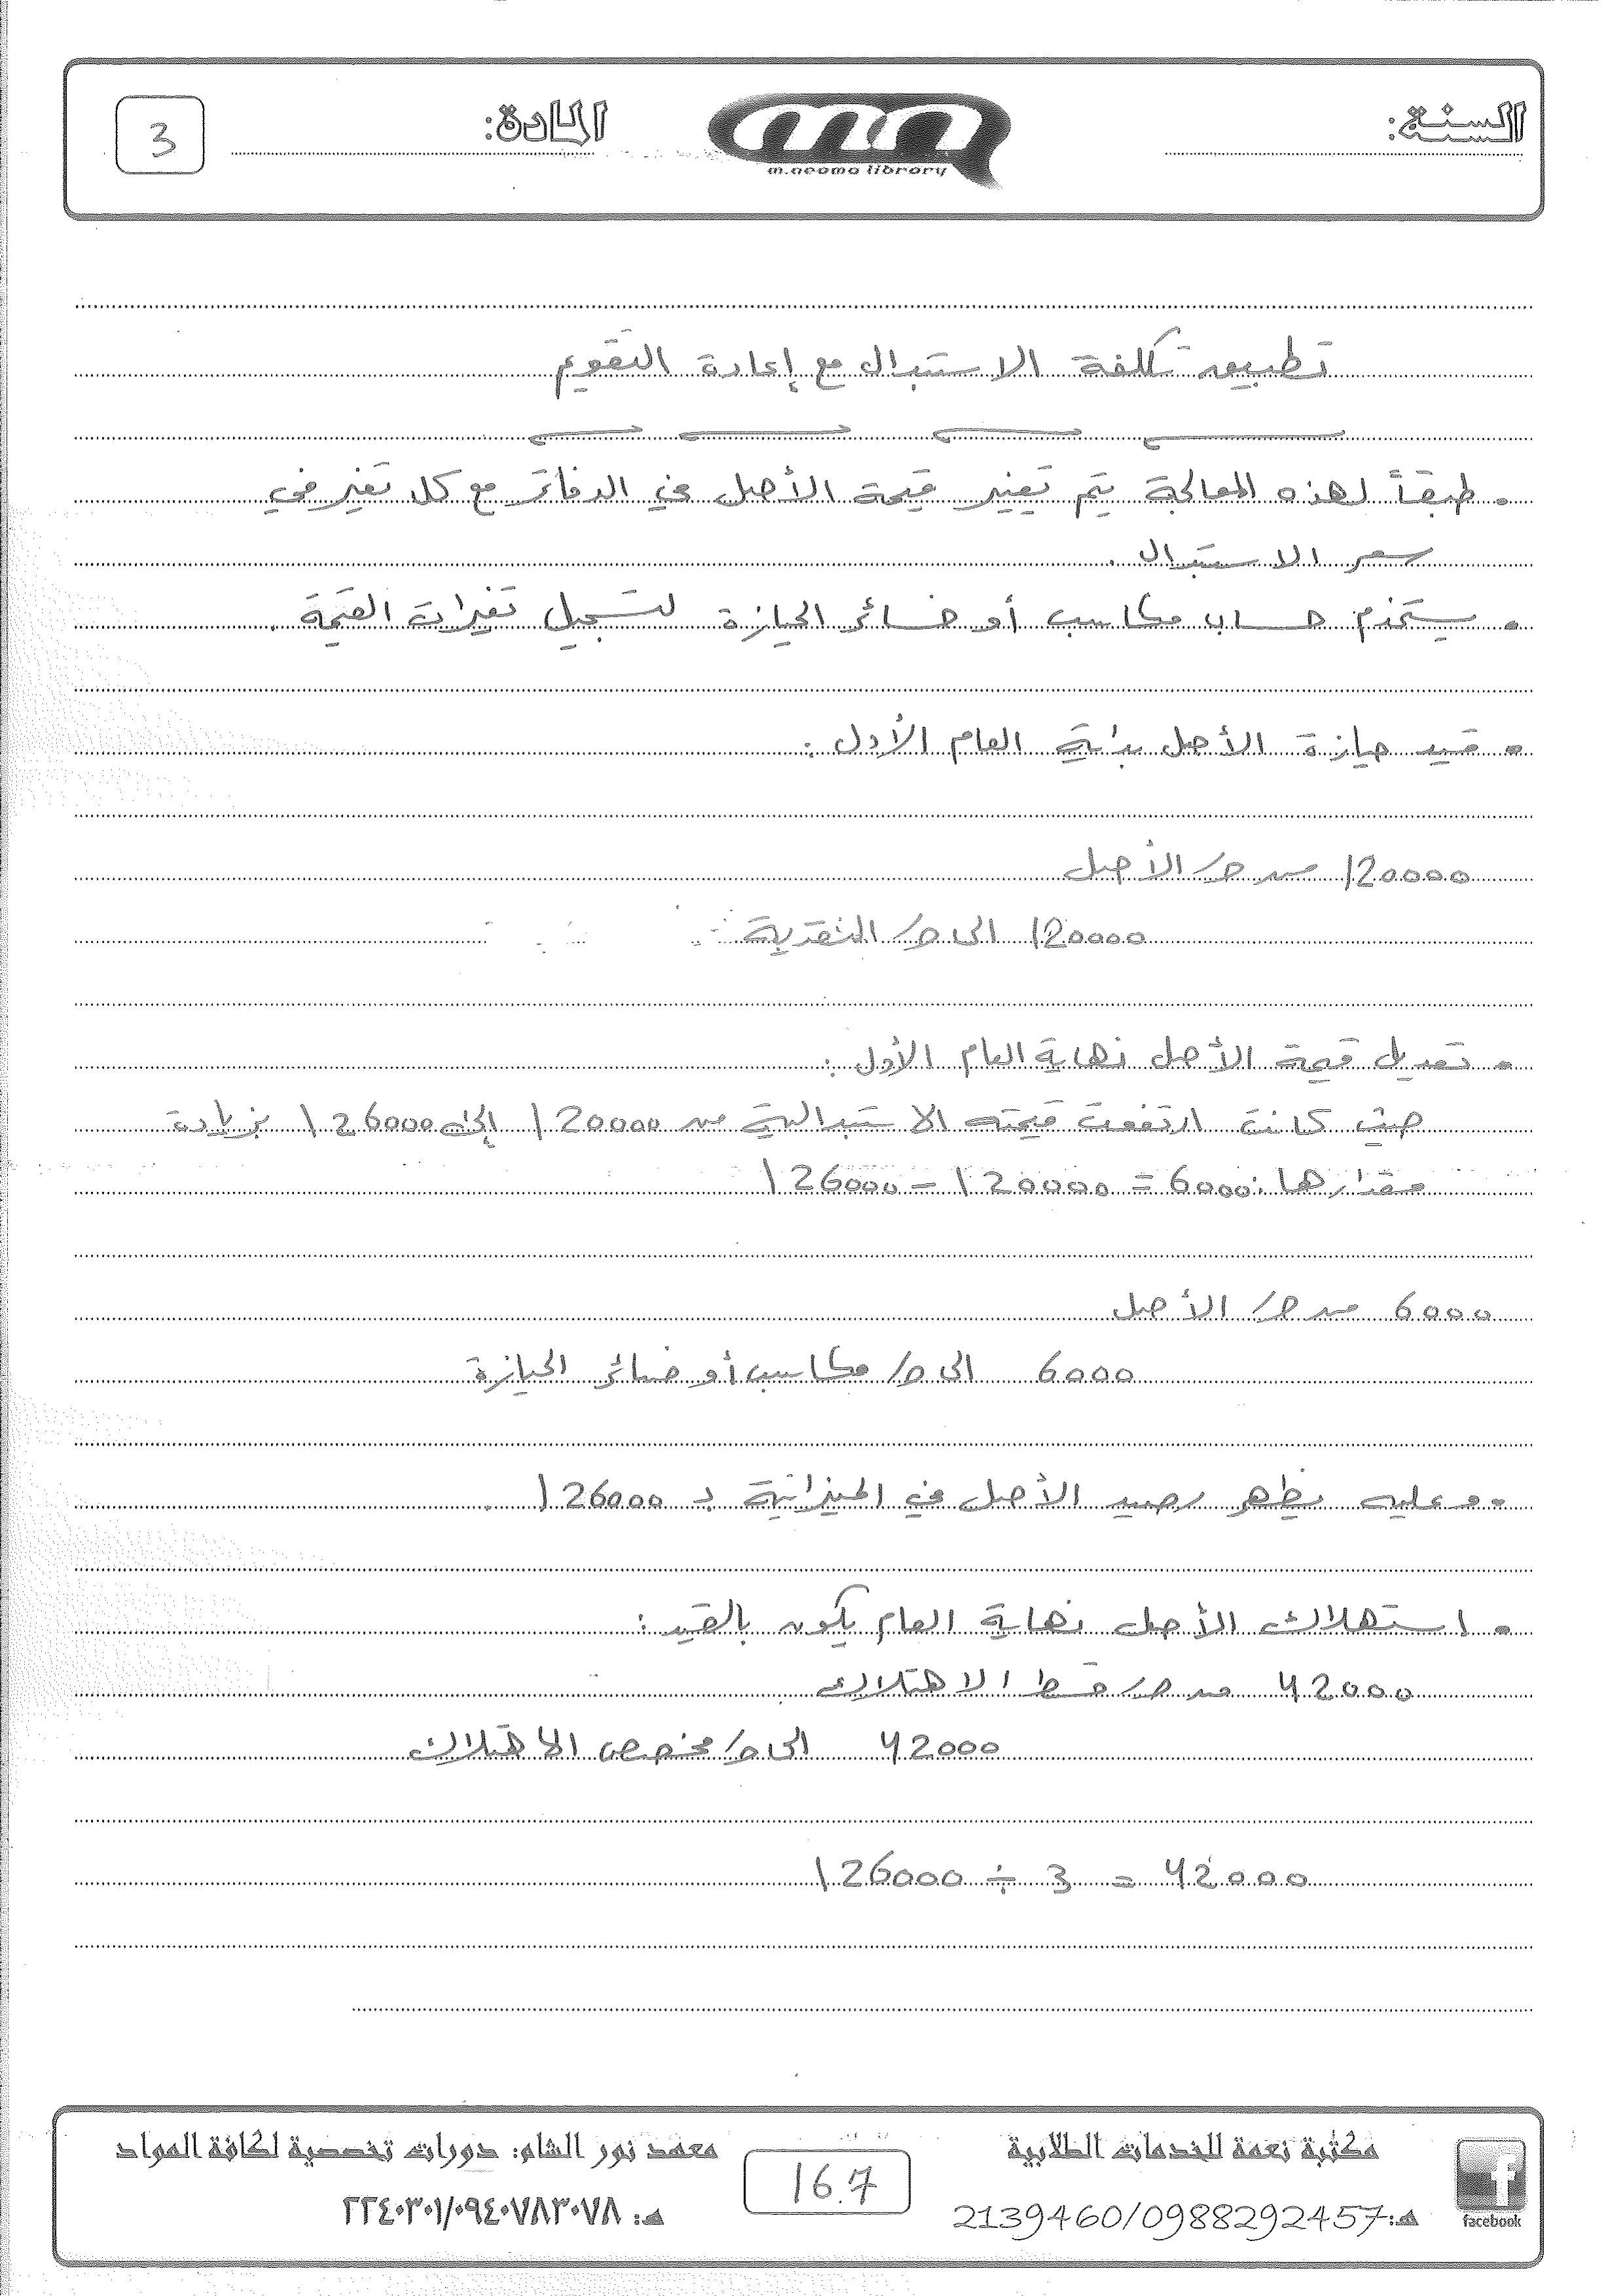 السنة:
m.neoma library
المادة:
3
تطبيق تكلفة الاستبدال مع إعادة التقويم
• طبقاً لهذه المعالجة يتم تغيير قيمة الأصل في الدفاتر مع كل تغير في
سعر الاستبدال .
• يستخدم حساب مكاسب أو خسائر الحيازة لتسجيل تغيرات القيمة .
• قيد حيازة الأصل بداية العام الأول :
120000 من ح/ الأصل
120000 الى ح/ النقدية
• تعديل قيمة الأصل نهاية العام الأول :
حيث كانت ارتفعت قيمته الاستبدالية من 120000 إلى 126000 بزيادة
مقدارها : 126000 – 120000 = 6000
6000 من ح/ الأصل
6000 الى ح/ مكاسب أو خسائر الحيازة
• وعليه يظهر رصيد الأصل في الميزانية بـ 126000 .
• استهلاك الأصل نهاية العام يكون بالقيد :
42000 من ح/ قسط الاهتلاك
42000 الى ح/ مخصص الاهتلاك
126000 ÷ 3 = 42000
facebook
مكتبة نعمة للخدمات الطلابية
هـ: 2139460/0988292457
167
معهد نور الشام: دورات تخصصية لكافة المواد
هـ: ٢٢٤٠٣٠١/٠٩٤٠٧٨٣٠٧٨